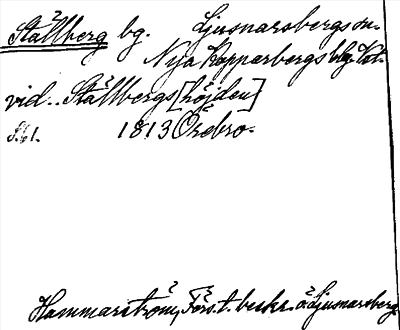 Ställberg bg. Ljusnarsbergs sn.
Nya Kopparbergs blg. Kst.
vid.. Ställbergs [höjden]
S. 61. 1813 Örebro.
Hammarström, Förs. t. beskr. ö. Ljusnarsberg